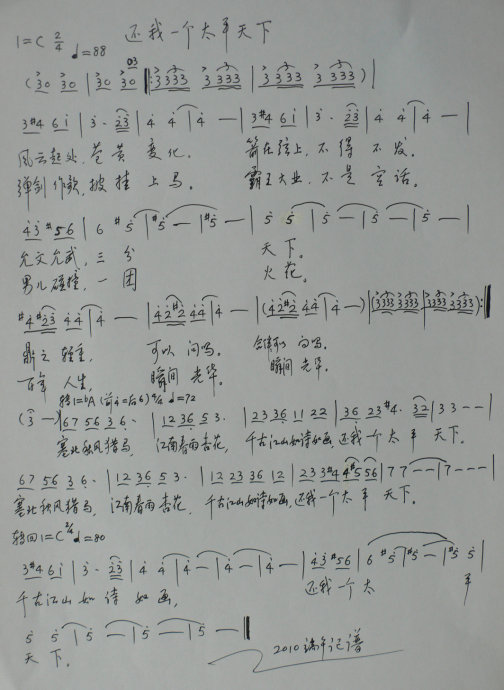 1=C 2/4 ♩=88 还我一个太平天下
(30 30 | 30 30 03 ‖: 3333 3333 | 3333 3333 ) |
3#4 6i | 3· 23 | 4 4 | 4 — | 3#4 6i | 3· 23 | 4 4 | 4 — |
风云起处,苍黄变化, 箭在弦上,不得不发。
弹剑作歌,披挂上马。 霸王大业,不是空话。
43 #56 | 6 #5 | #5 — | #5 — | 5 5 | 5 — | 5 — | 5 — |
允文允武,三分 天下。
男儿碰撞,一团 火花。
#4 #23 44 | 4 — | 42#2 44 | 4 — | (42#2 44 | 4 —) | 3333 3333 | 3333 3333 :‖
鼎之轻重, 可以问吗。 可以问吗。
百年人生, 瞬间光华。 瞬间光华。
转1=bA (前4=后6) 4/4 ♩=72
(3 —) 67 56 3 6· | 12 36 5 3· | 23 36 11 22 | 36 23 #4· 32 | 3 3 - - |
塞北秋风猎马, 江南春雨杏花, 千古江山如诗如画,还我一个太平 天下。
67 56 3 6· | 12 36 5 3· | 12 23 36 12 | 23 3#4 4#5 56 | 7 7 - - | 7 - - - |
塞北秋风猎马, 江南春雨杏花, 千古江山如诗如画,还我一个太平 天下。
转回1=C 2/4 ♩=80
3#4 6i | 3· 23 | 4 4 | 4 — | 4 — | 4 — | 43 #56 | 6 #5 | #5 — | #5 5 |
千古江山如诗如画, 还我一个太 平
5 5 | 5 — | 5 — | 5 — ‖
天下。 2010端午记谱